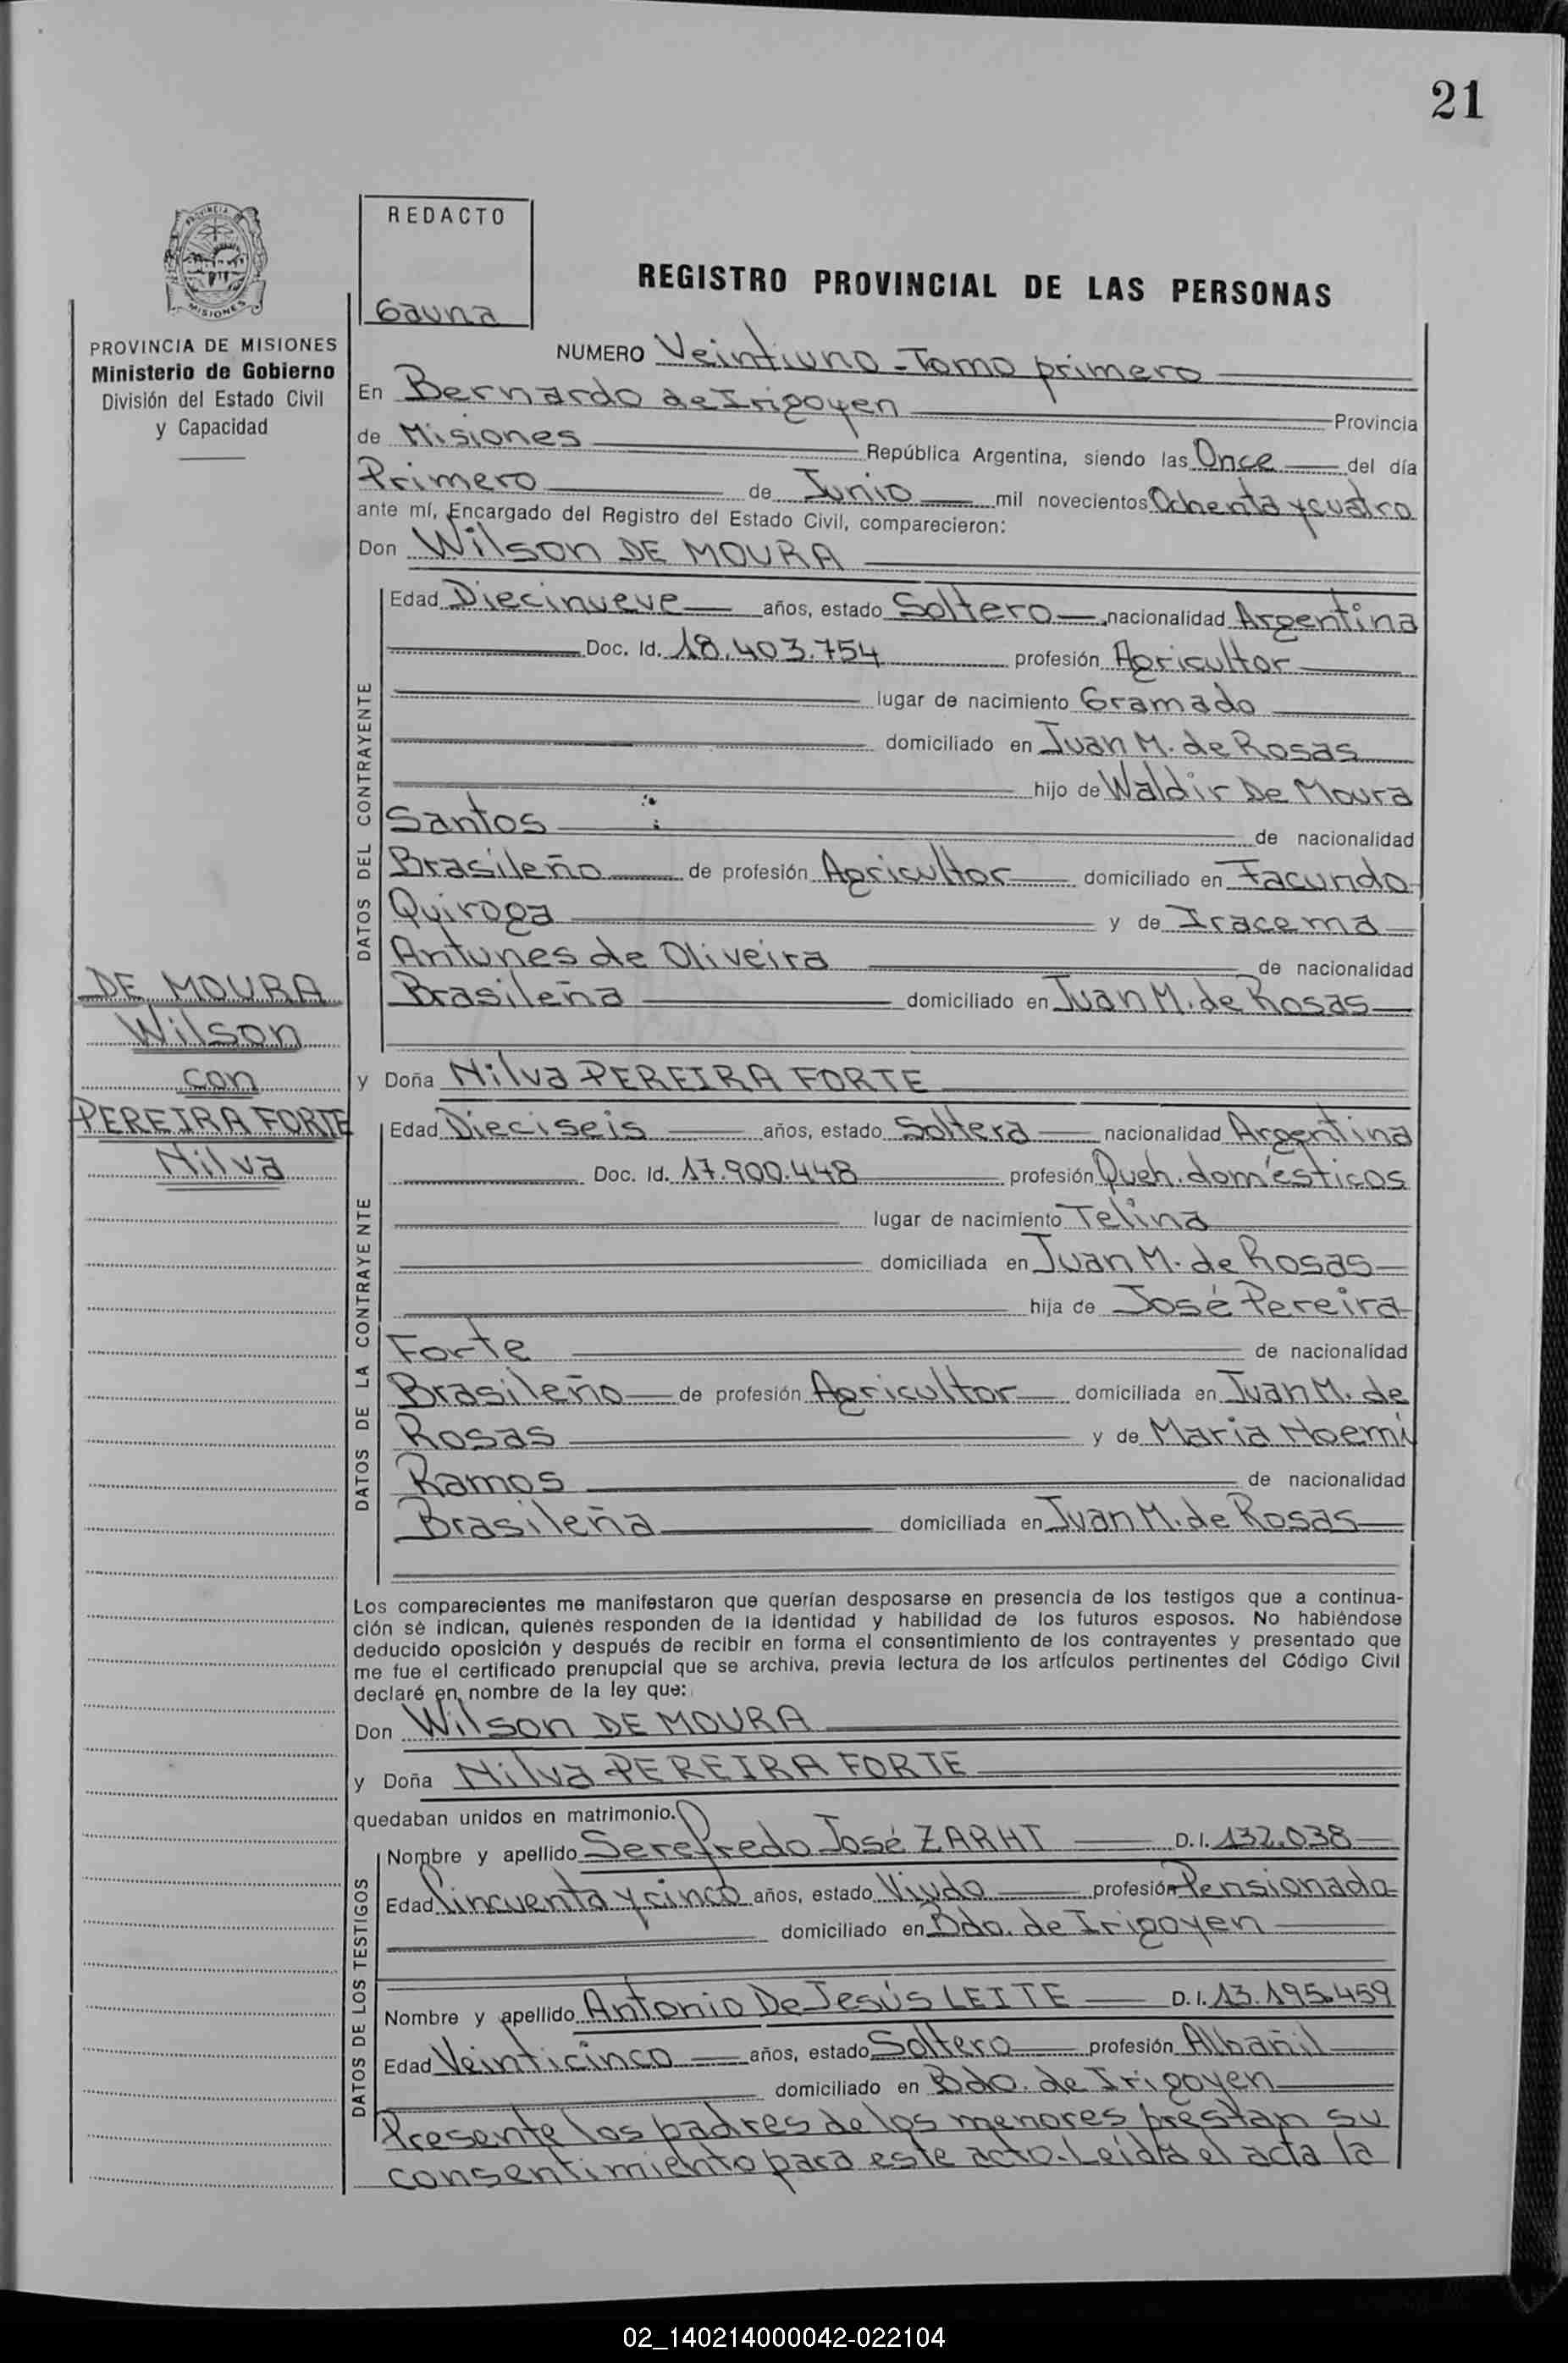 21
REDACTO
Gauna
PROVINCIA
MISIONES
PROVINCIA DE MISIONES
Ministerio de Gobierno
División del Estado Civil
y Capacidad
REGISTRO PROVINCIAL DE LAS PERSONAS
NUMERO Veintiuno - Tomo primero
En Bernardo de Irigoyen Provincia
de Misiones República Argentina, siendo las Once del día
Primero de Junio mil novecientos Ochenta y cuatro
ante mí, Encargado del Registro del Estado Civil, comparecieron:
Don Wilson DE MOURA
DATOS DEL CONTRAYENTE
Edad Diecinueve años, estado Soltero nacionalidad Argentina
Doc. Id. 18.403.754 profesión Agricultor
lugar de nacimiento Gramado
domiciliado en Juan M. de Rosas
hijo de Waldir De Moura
Santos de nacionalidad
Brasileño de profesión Agricultor domiciliado en Facundo
Quiroga y de Iracema
Antunes de Oliveira de nacionalidad
Brasileña domiciliado en Juan M. de Rosas
DE MOURA
Wilson
con
PEREIRA FORTE
Nilva
y Doña Nilva PEREIRA FORTE
DATOS DE LA CONTRAYENTE
Edad Dieciseis años, estado Soltera nacionalidad Argentina
Doc. Id. 17.900.448 profesión Queh. domésticos
lugar de nacimiento Telina
domiciliada en Juan M. de Rosas
hija de José Pereira
Forte de nacionalidad
Brasileño de profesión Agricultor domiciliada en Juan M. de
Rosas y de Maria Noemí
Ramos de nacionalidad
Brasileña domiciliada en Juan M. de Rosas
Los comparecientes me manifestaron que querían desposarse en presencia de los testigos que a continua-
ción se indican, quienes responden de la identidad y habilidad de los futuros esposos. No habiéndose
deducido oposición y después de recibir en forma el consentimiento de los contrayentes y presentado que
me fue el certificado prenupcial que se archiva, previa lectura de los artículos pertinentes del Código Civil
declaré en nombre de la ley que:
Don Wilson DE MOURA
y Doña Nilva PEREIRA FORTE
quedaban unidos en matrimonio.
DATOS DE LOS TESTIGOS
Nombre y apellido Serefredo José ZARHT D.I. 132.038
Edad Cincuenta y cinco años, estado Viudo profesión Pensionado
domiciliado en Bdo. de Irigoyen
Nombre y apellido Antonio De Jesús LEITE D.I. 13.195.459
Edad Veinticinco años, estado Soltero profesión Albañil
domiciliado en Bdo. de Irigoyen
Presente los padres de los menores prestan su
consentimiento para este acto. Leída el acta la
02_140214000042-022104